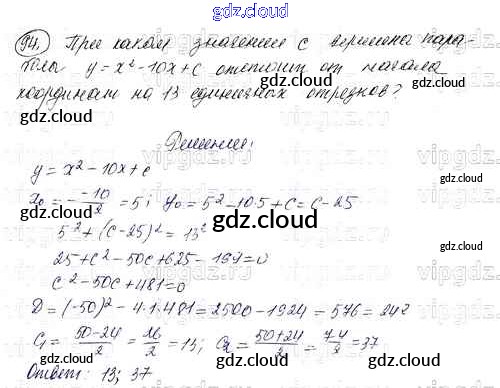 gdz.cloud
94. При каком значении с вершина пара-
болы y=x²-10x+c отстоит от начала
координат на 13 единичных отрезков?
gdz.cloud
Решение:
y=x²-10x+c
x₀=-\frac{-10}{2}=5; y₀=5²-10·5+c=c-25
gdz.cloud
5²+(c-25)²=13²
25+c²-50c+625-169=0
c²-50c+481=0
D=(-50)²-4·1·481=2500-1924=576=24²
c₁=\frac{50-24}{2}=\frac{26}{2}=13; c₂=\frac{50+24}{2}=\frac{74}{2}=37
Ответ: 13; 37
gdz.cloud